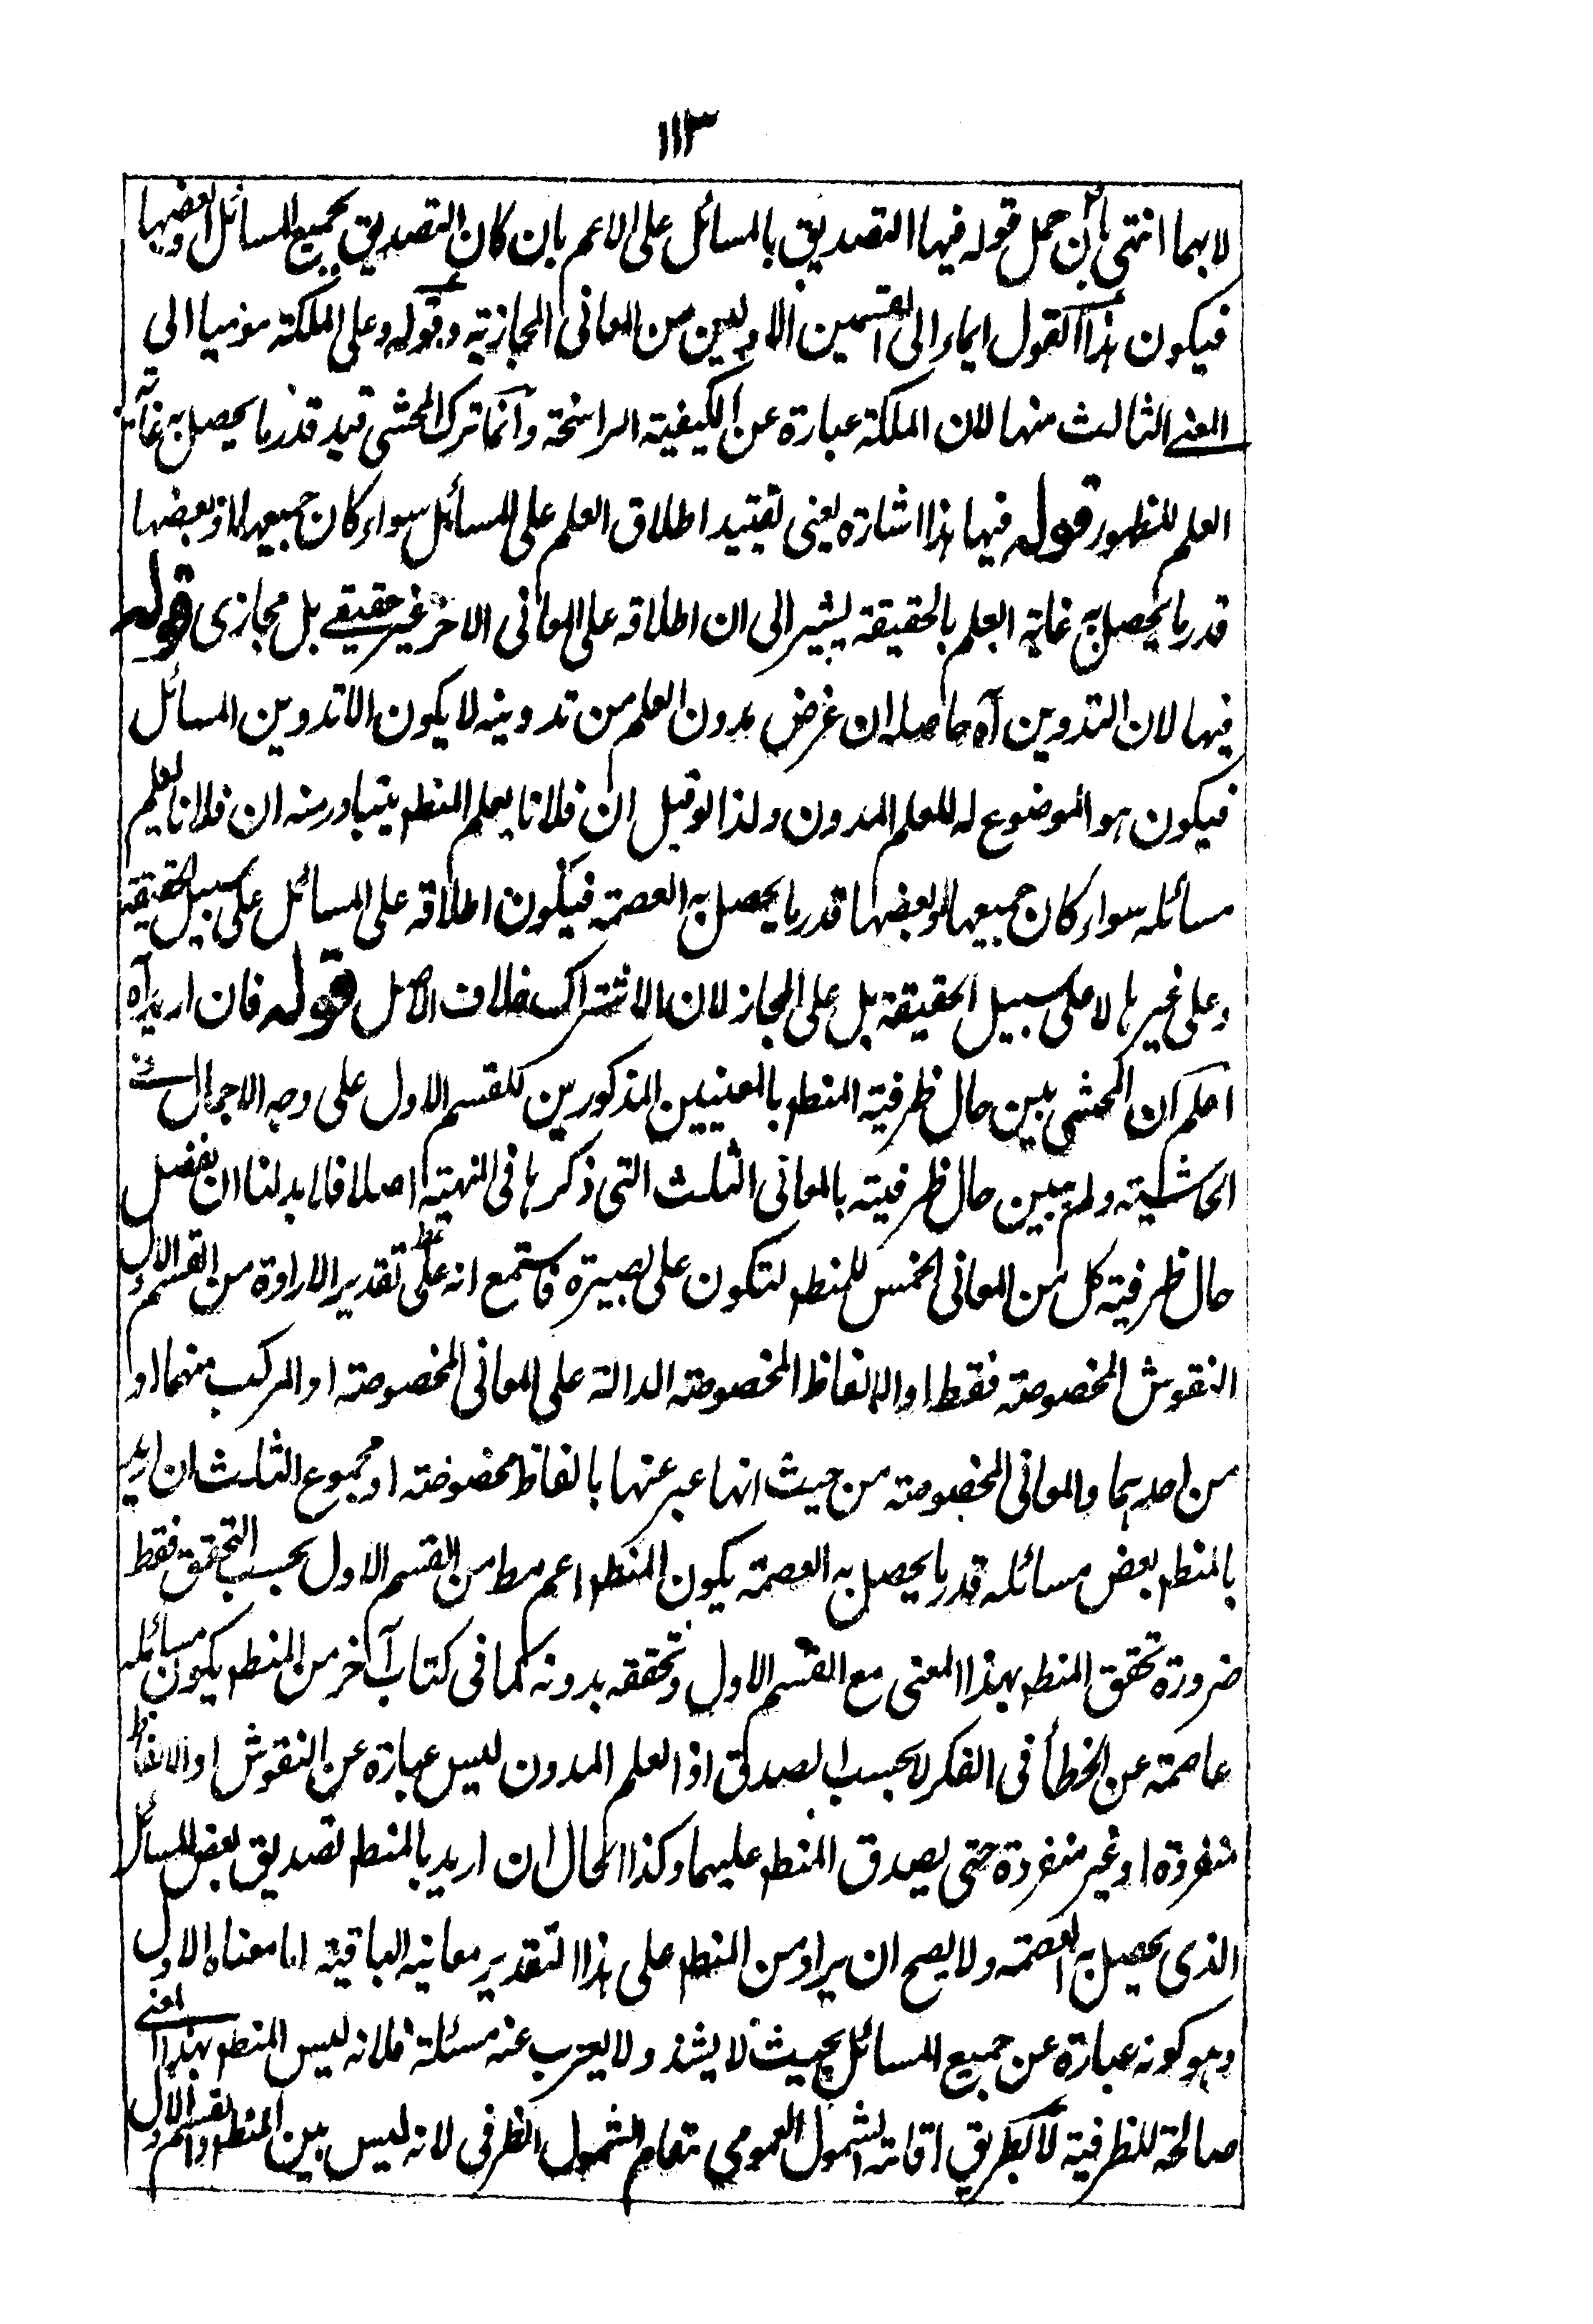 ١١٣
لا بهما انتهى بأن حمل قوله فيها التصديق بالمسائل على الاعم بان كان التصديق بجميع المسائل او بعضها
فيكون هذا القول ايماء الى القسمين الاولين من المعانى المجازية وبقوله وعلى الملكة مؤميا الى
المعنى الثالث منها لان الملكة عبارة عن الكيفية الراسخة وانما ترك المحشى قيد قدر ما يحصل به غاية
العلم للظهور قوله فيها هذا اشارة يعنى تقييد اطلاق العلم على المسائل سواء كان جميعها او بعضها
قدر ما يحصل به غاية العلم بالحقيقة يشير الى ان اطلاقه على المعانى الاخر غير حقيقى بل مجازى قوله
فيها لان التدوين آه حاصله ان غرض مدون العلم من تدوينه لا يكون الا تدوين المسائل
فيكون هو الموضوع له للعلم المدون ولذا لو قيل ان فلانا يعلم المنطه يتبادر منه ان فلانا يعلم
مسائله سواء كان جميعها او بعضها قدر ما يحصل به العصمة فيكون اطلاقه على المسائل على سبيل الحقيقة
وعلى غيرها لا على سبيل الحقيقة بل على المجاز لان الاشتراك خلاف الاصل قوله فان اريد آه
اعلم ان المحشى بين حال ظرفية المنطه بالمعنيين المذكورين للقسم الاول على وجه الاجمال فى
الحاشية ولم يبين حال ظرفيته بالمعانى الثلث التى ذكرها فى المنهية اصلا فلا بد لنا ان نفصل
حال ظرفية كل من المعانى الخمس للمنطه لتكون على بصيرة فاستمع انه على تقدير الارادة من القسم الاول
النقوش المخصوصة فقط او الالفاظ المخصوصة الدالة على المعانى المخصوصة او المركب منهما او
من احدهما والمعانى المخصوصة من حيث انها عبر عنها بالفاظ مخصوصة او مجموع الثلث ان اريد
بالمنطه بعض مسائله قدر ما يحصل به العصمة يكون المنطه اعم مط من القسم الاول بحسب التحقق فقط
ضرورة تحقق المنطه بهذا المعنى مع القسم الاول وتحققه بدونه كما فى كتاب آخر من المنطه يكون مسائله
عاصمة عن الخطأ فى الفكر لا بحسب الصدق اذ العلم المدون ليس عبارة عن النقوش او الالفاظ
منفردة او غير منفردة حتى يصدق المنطه عليهما وكذا الحال ان اريد بالمنطه تصديق بعض المسائل
الذى يحصل به العصمة ولا يصح ان يراد من المنطه على هذا التقدير معانيه الباقية اما معناه الاول
وهو كونه عبارة عن جميع المسائل بحيث لا يشذ ولا يعزب عنه مسئلة فلانه ليس المنطه بهذا المعنى
صالحة للظرفية لا بطريق اقامة الشمول العمومى مقام الشمول الظرفى لانه ليس بين المنطه والقسم الاول